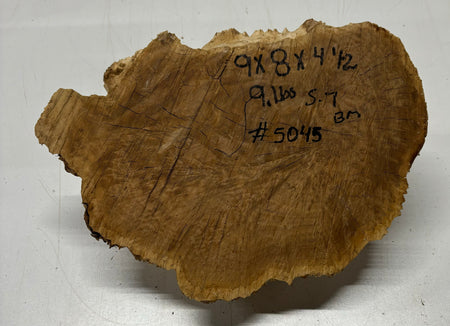 9x8x4 1/2
9.lbs 5.7
BM
#5045